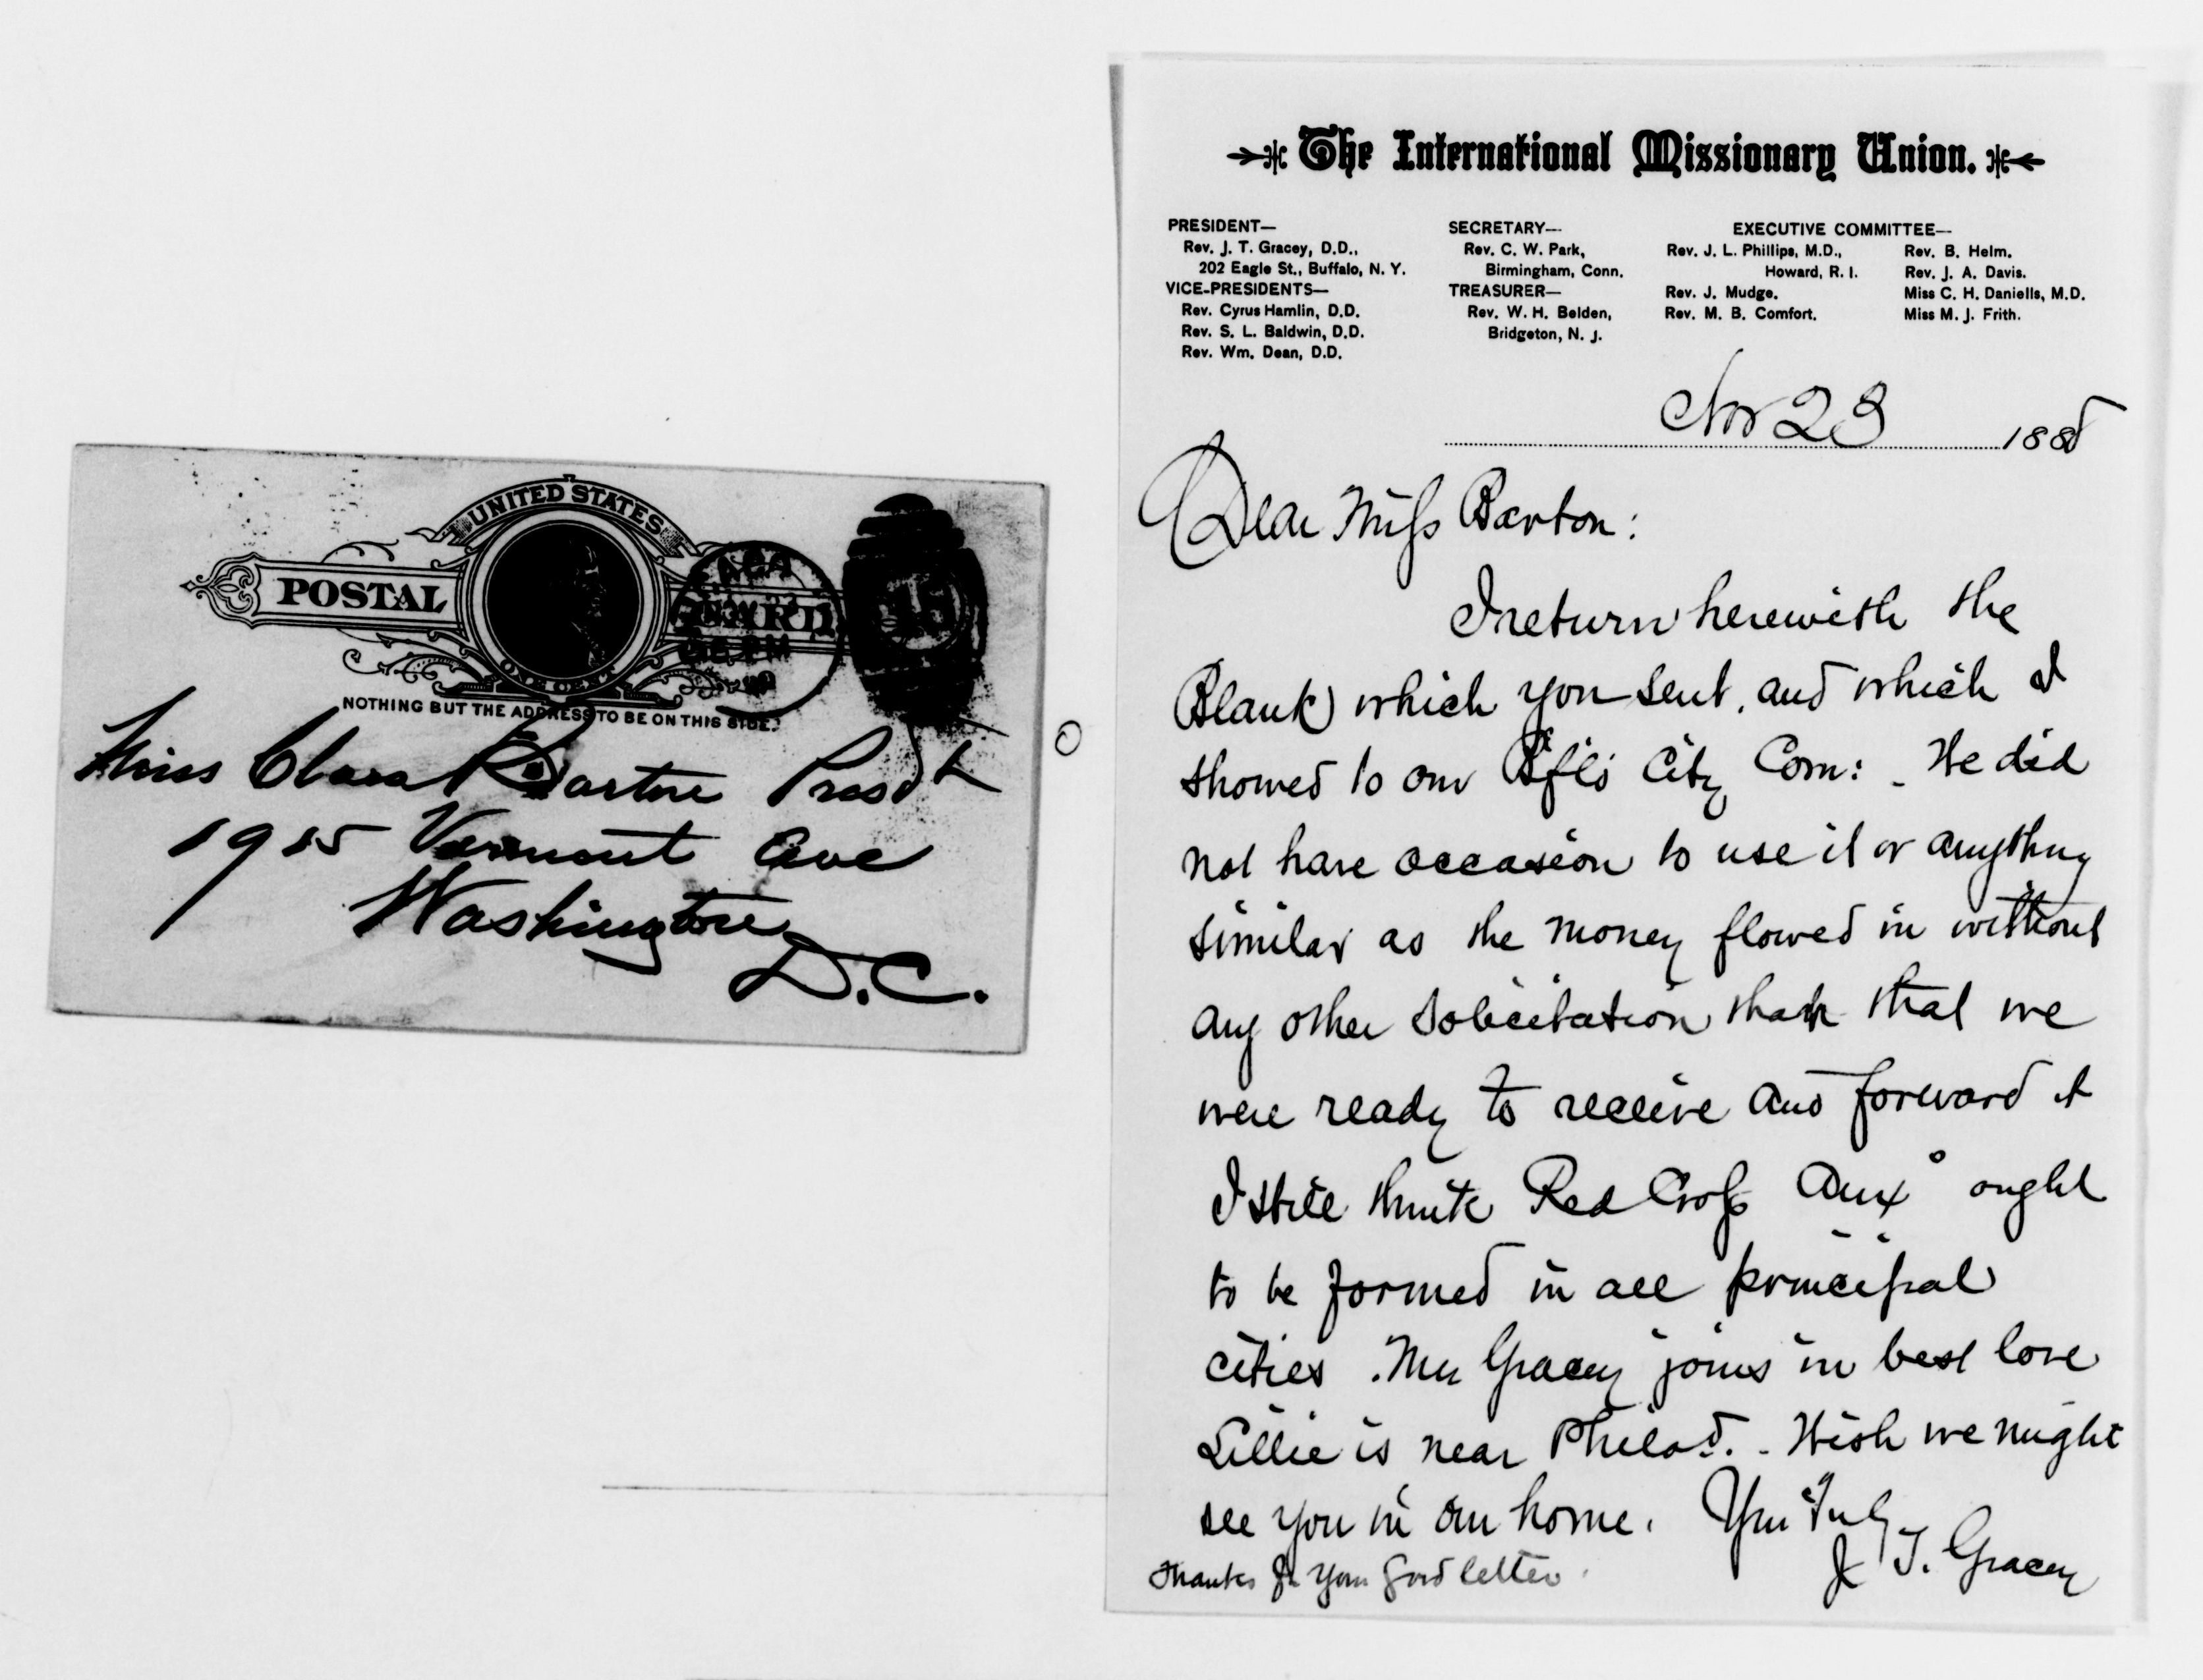 UNITED STATES
POSTAL CARD
ONE CENT
NOTHING BUT THE ADDRESS TO BE ON THIS SIDE.
Miss Clara Barton Presdt
1915 Vermont Ave
Washington
D.C.
The International Missionary Union.
PRESIDENT—
Rev. J. T. Gracey, D.D.,
202 Eagle St., Buffalo, N. Y.
VICE-PRESIDENTS—
Rev. Cyrus Hamlin, D.D.
Rev. S. L. Baldwin, D.D.
Rev. Wm. Dean, D.D.
SECRETARY—
Rev. C. W. Park,
Birmingham, Conn.
TREASURER—
Rev. W. H. Belden,
Bridgeton, N. J.
EXECUTIVE COMMITTEE—
Rev. J. L. Phillips, M.D.,
Howard, R. I.
Rev. J. Mudge.
Rev. M. B. Comfort.
Rev. B. Helm.
Rev. J. A. Davis.
Miss C. H. Daniells, M.D.
Miss M. J. Frith.
Nov 23 188
Dear Miss Barton:
I return herewith the
Blank which you sent, and which I
showed to our Bflo City Com: - He did
not have occasion to use it or anything
similar as the money flowed in without
any other solicitation than that we
were ready to receive and forward it
I still think Red Cross Aux° ought
to be formed in all principal
cities. Mrs Gracey joins in best love
Lillie is near Philad. - Wish we might
see you in our home. Yrs Truly
J. T. Gracey
Thanks for your good letter.